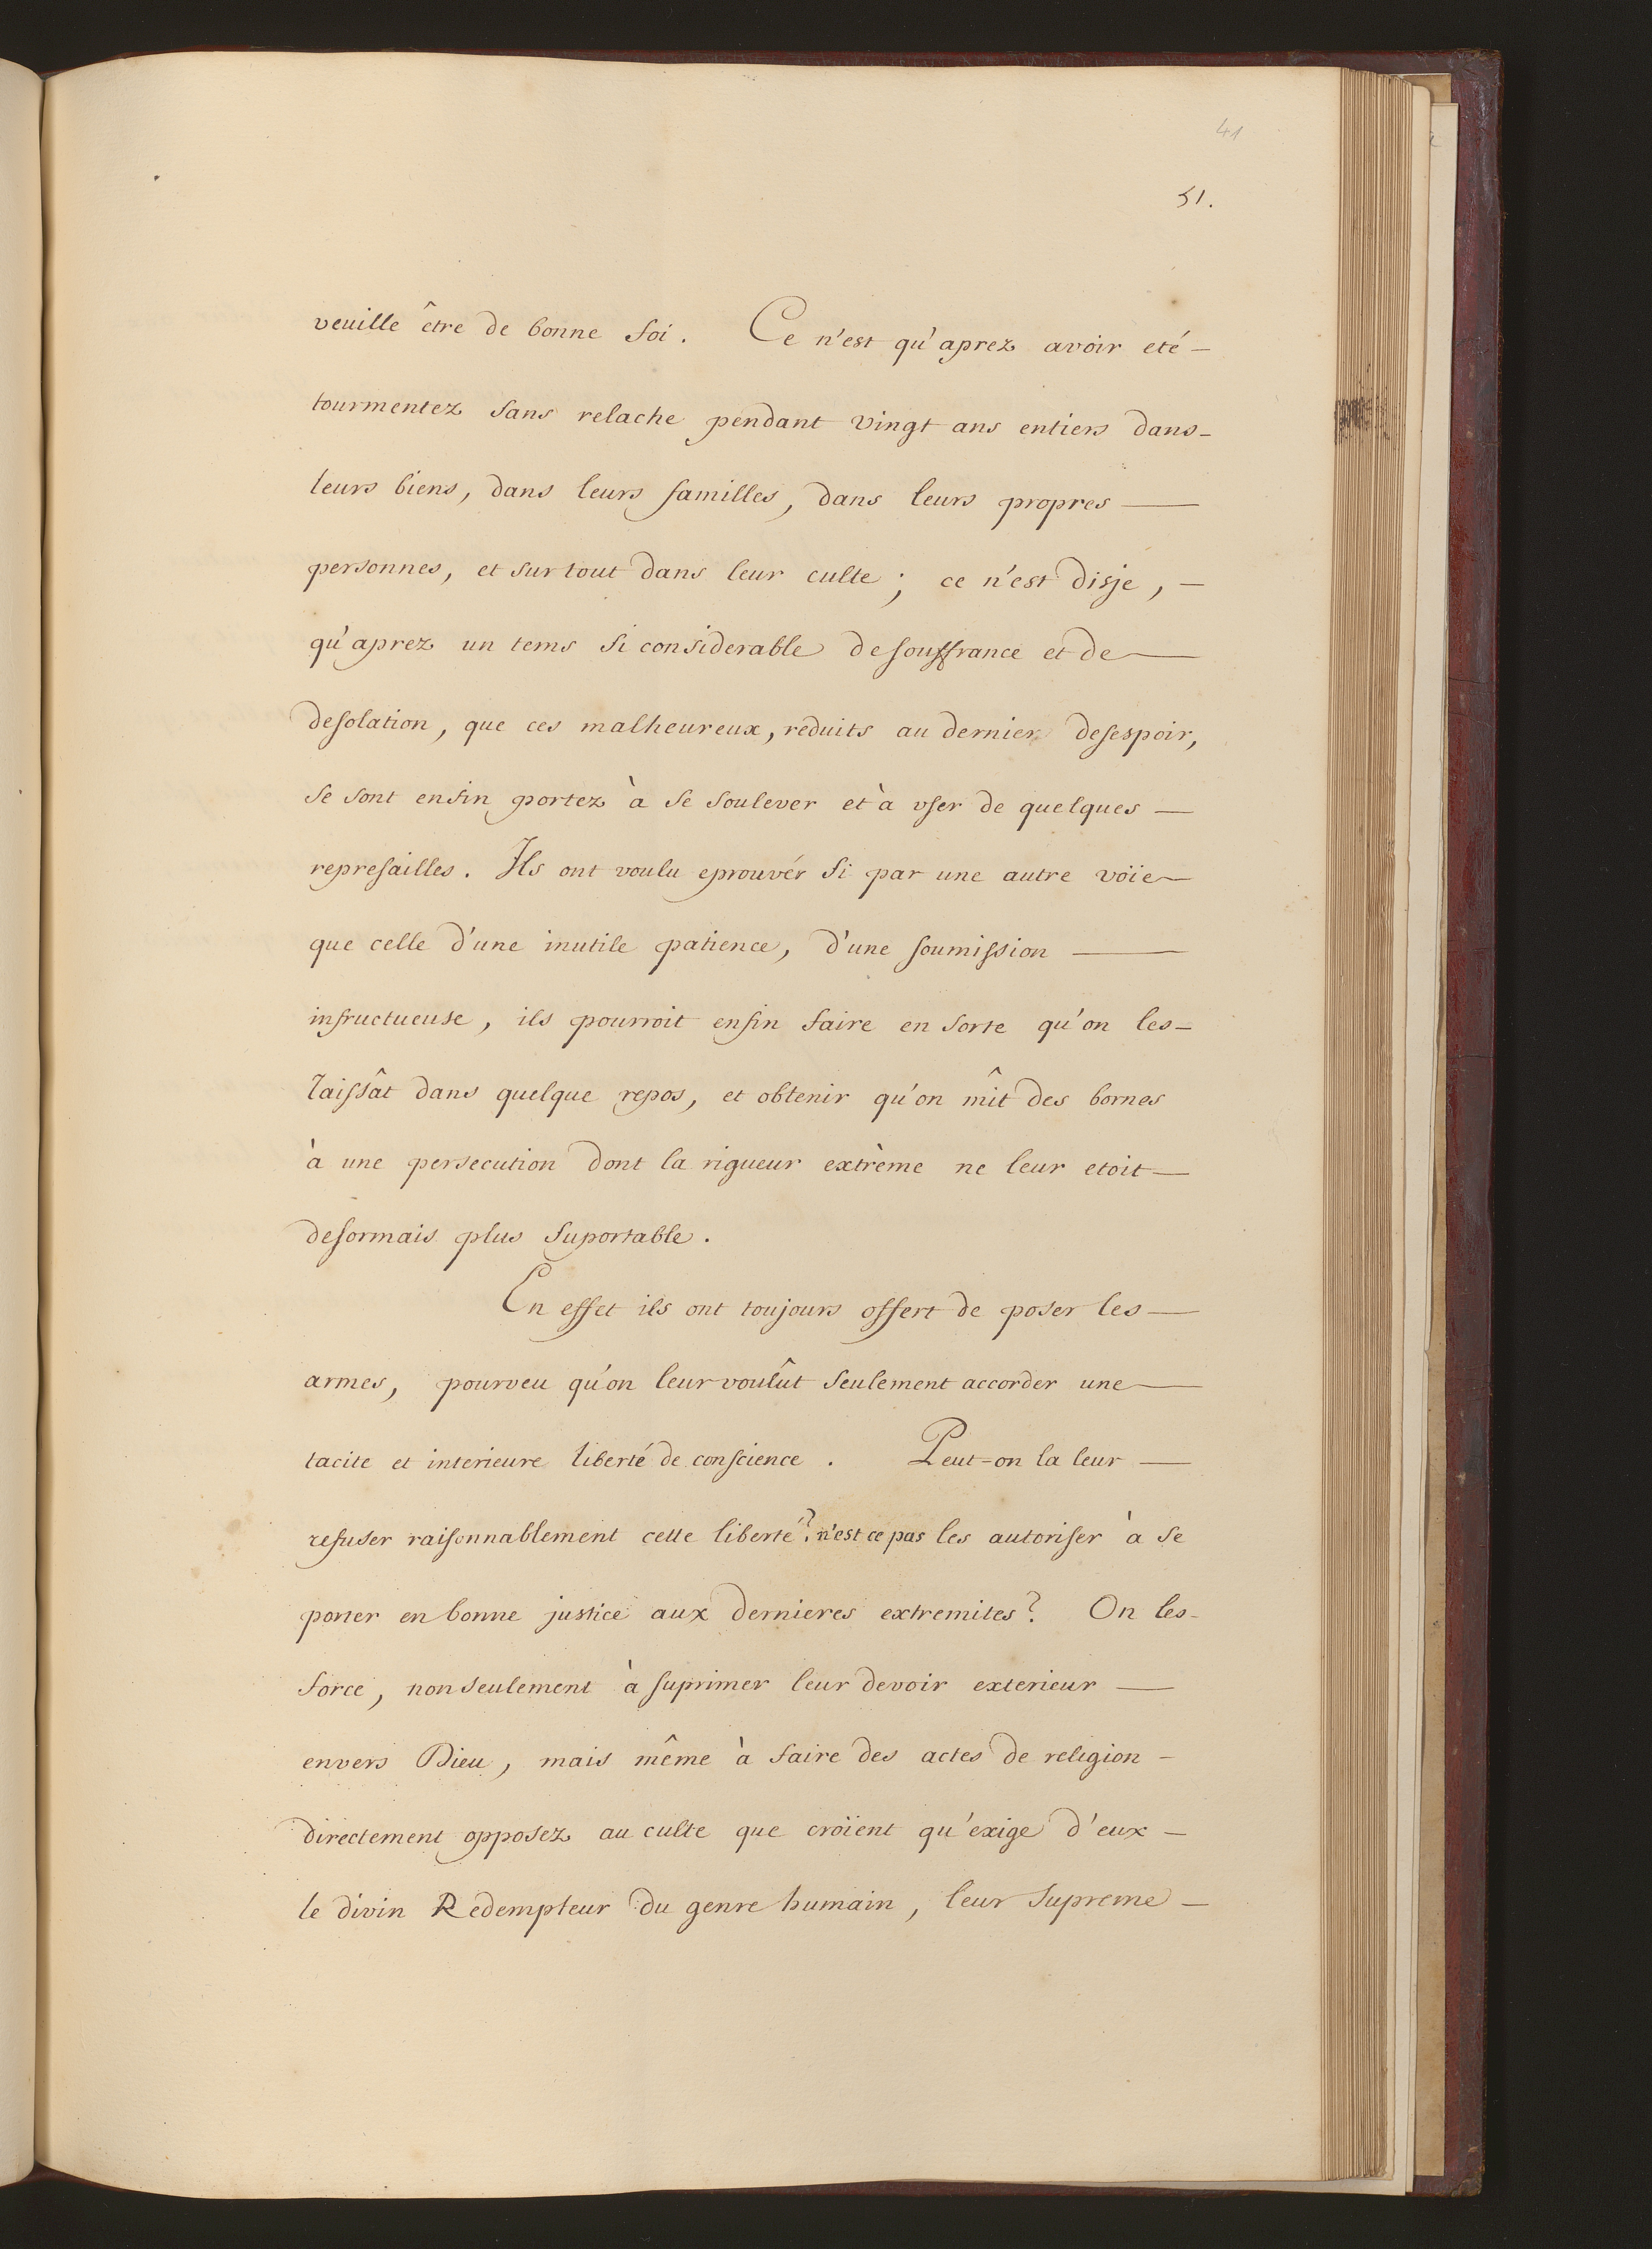 41
51.
veuille être de bonne foi. Ce n'est qu'aprez avoir eté —
tourmentez sans relache pendant vingt ans entiers dans —
leurs biens, dans leurs familles, dans leurs propres —
personnes, et sur tout dans leur culte ; ce n'est disje, —
qu'aprez un tems si considerable de souffrance et de —
desolation, que ces malheureux, reduits au dernier desespoir,
se sont enfin portez à se soulever et à user de quelques —
represailles. Ils ont voulu eprouvér si par une autre voïe —
que celle d'une inutile patience, d'une soumission —
infructueuse, ils pourroit enfin faire en sorte qu'on les —
laissât dans quelque repos, et obtenir qu'on mît des bornes
à une persecution dont la rigueur extrème ne leur etoit —
desormais plus suportable.
En effet ils ont toujours offert de poser les —
armes, pourveu qu'on leur voulût seulement accorder une —
tacite et interieure liberté de conscience. Peut=on la leur —
refuser raisonnablement cette liberté? n'est ce pas les autoriser à se
porter en bonne justice aux dernieres extremites? On les —
force, non seulement à suprimer leur devoir exterieur —
envers Dieu, mais même à faire des actes de religion —
directement opposez au culte que croïent qu'exige d'eux —
le divin Redempteur du genre humain, leur supreme —